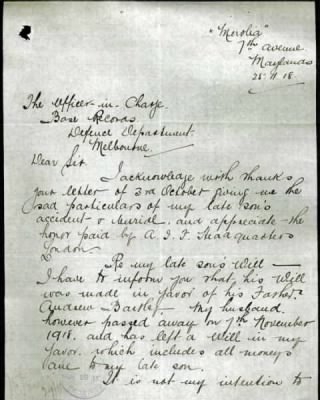 "Merolia"
7th Avenue
Maylands
25.11.18
The Officer-in-Charge
Base Records
Defence Department
Melbourne
Dear Sir
I acknowledge with thanks
your letter of 3rd October giving me the
sad particulars of my late son's
accident & burial and appreciate the
honor paid by A.I.F Headquarters
London
Re my late son's Will
I have to inform you that his Will
was made in favor of his Father
Andrew My husband
however passed away on 7th November
1918. and has left a Will in my
favor. which includes all moneys
due to my late son.
It is not my intention to